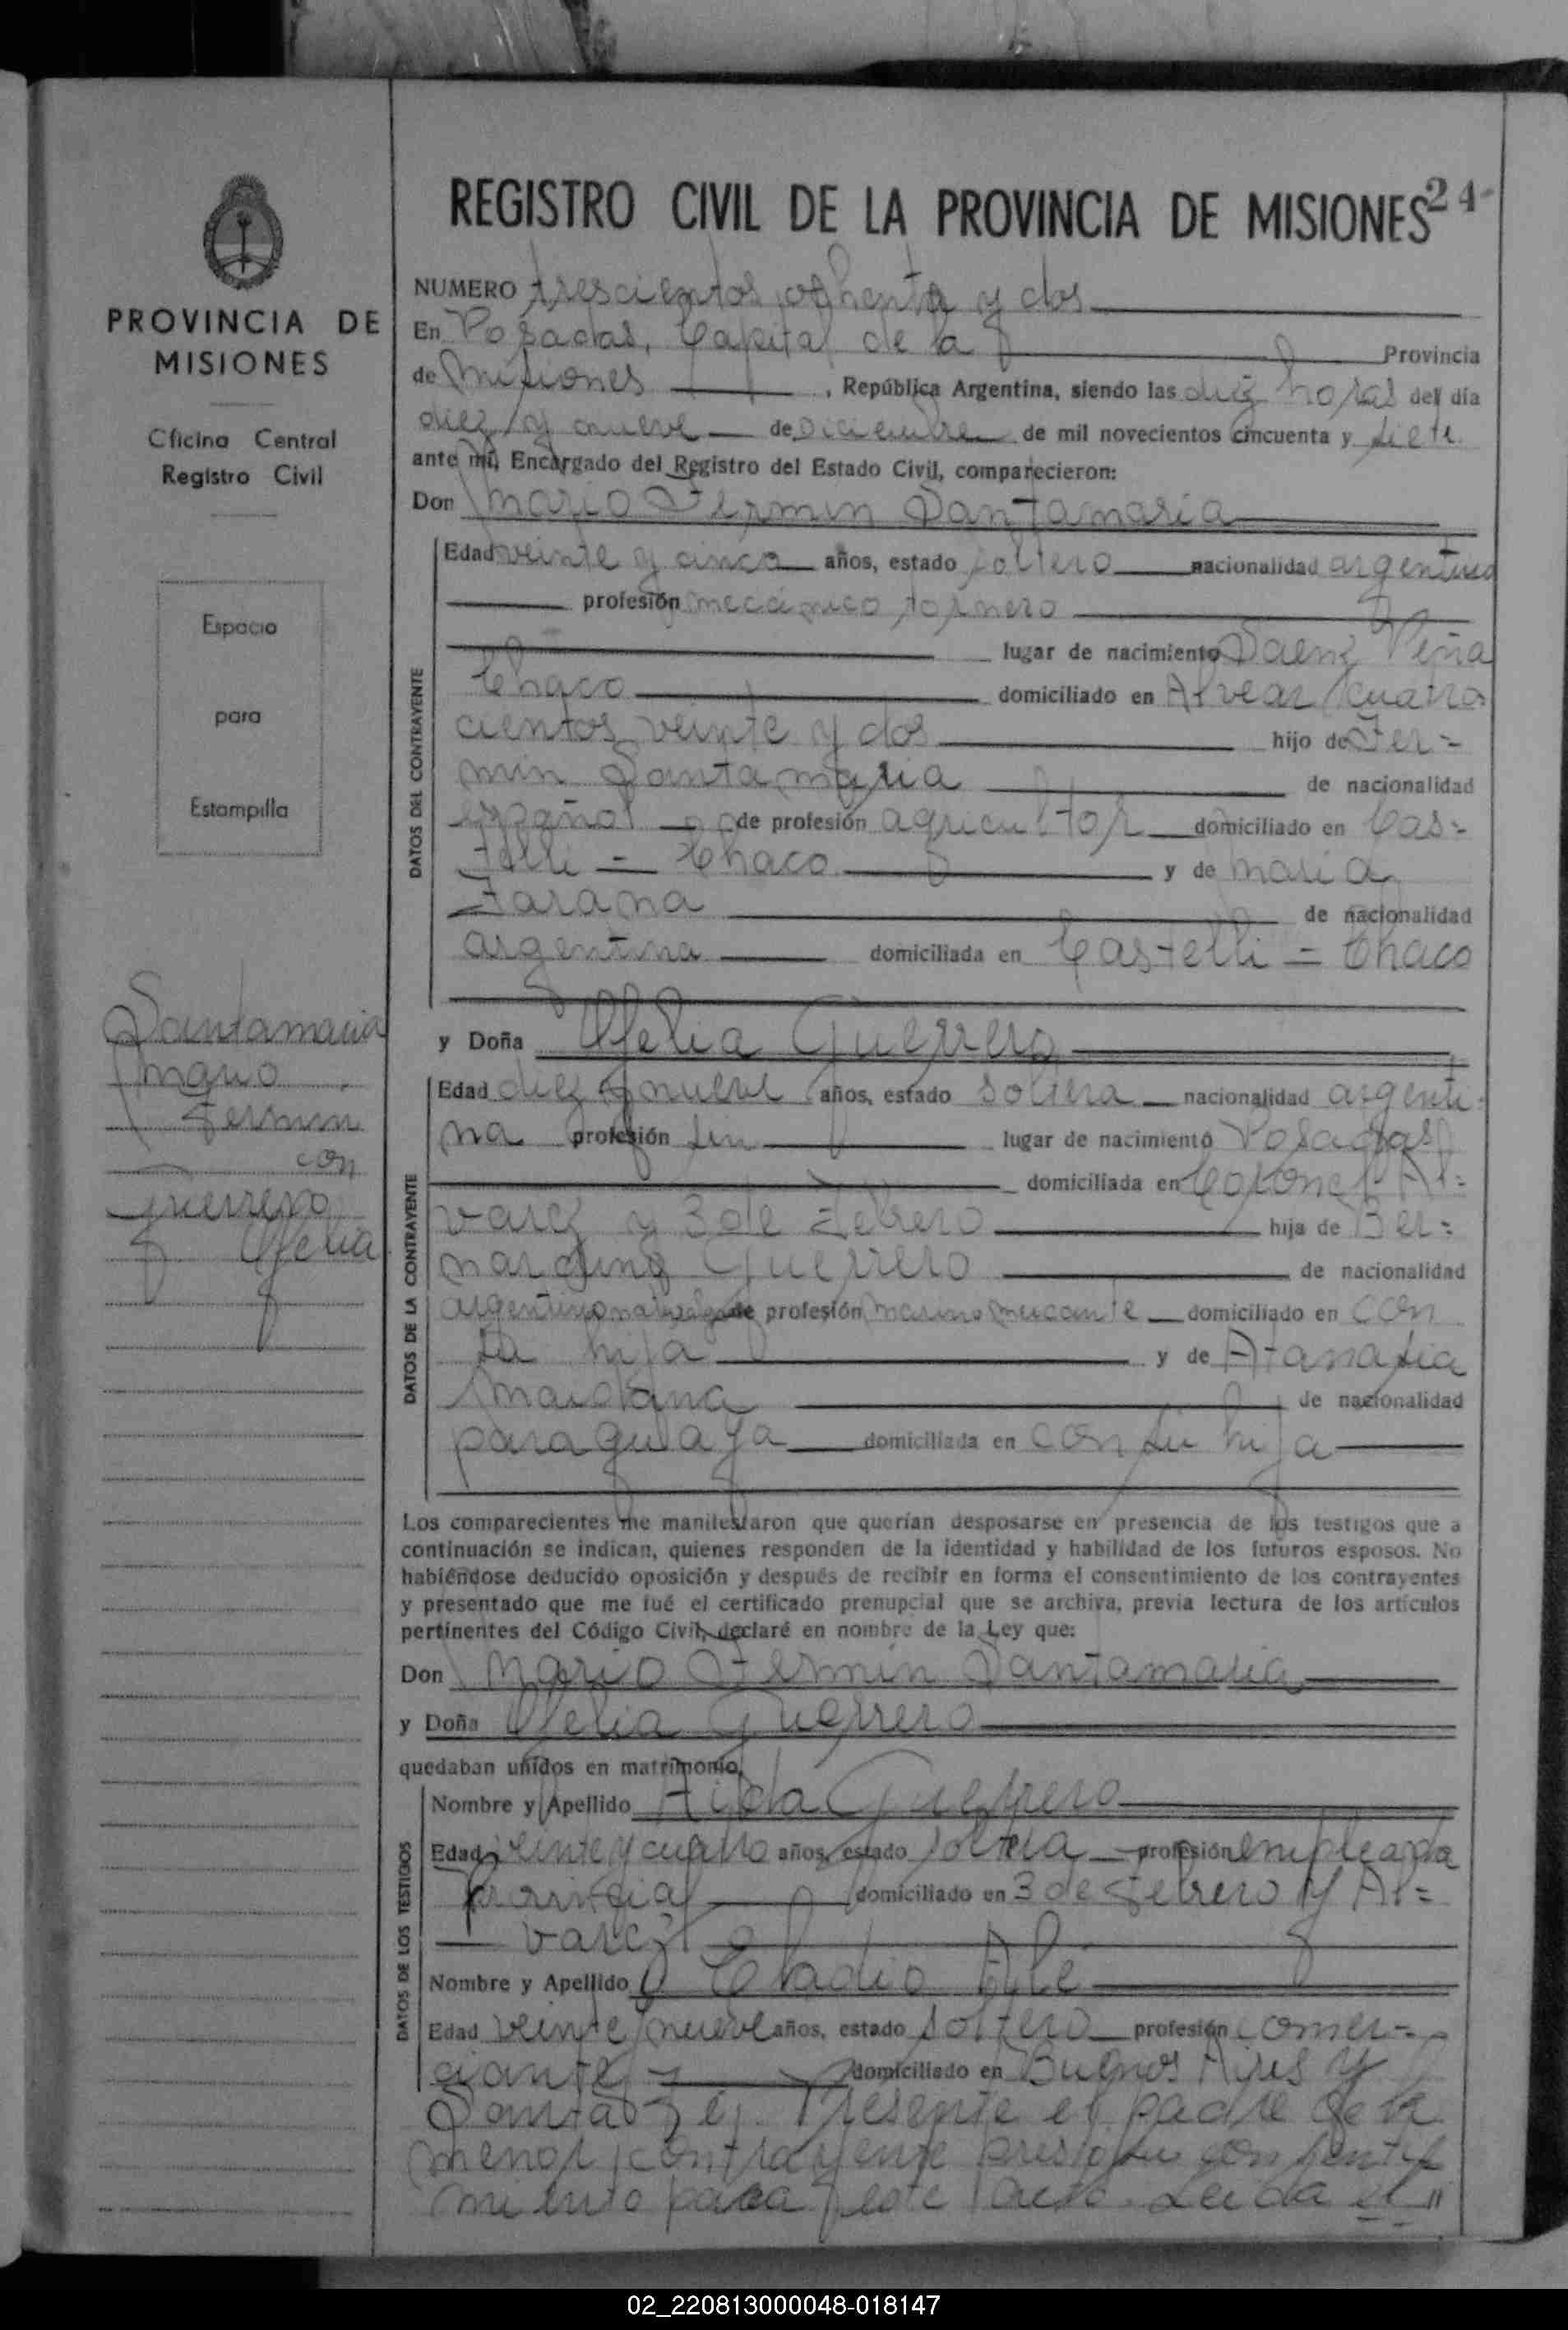 REGISTRO CIVIL DE LA PROVINCIA DE MISIONES 24
PROVINCIA DE
MISIONES
Oficina Central
Registro Civil
Espacio
para
Estampilla
Santamaria
Mario
Fermin
con
Guerrero
Ofelia
NUMERO trescientos ochenta y dos
En Posadas, Capital de la Provincia
de Misiones, República Argentina, siendo las diez horas del día
diez y nueve de Diciembre de mil novecientos cincuenta y siete
ante mí, Encargado del Registro del Estado Civil, comparecieron:
Don Mario Fermin Santamaria
DATOS DEL CONTRAYENTE
Edad veinte y cinco años, estado soltero nacionalidad argentino
profesión mecánico tornero
lugar de nacimiento Saenz Peña
Chaco domiciliado en Alvear cuatro
cientos veinte y dos hijo de Fer=
min Santamaria de nacionalidad
español de profesión agricultor domiciliado en Cas=
telli = Chaco y de Maria
Farana de nacionalidad
argentina domiciliada en Castelli = Chaco
y Doña Ofelia Guerrero
DATOS DE LA CONTRAYENTE
Edad diez y nueve años, estado soltera nacionalidad argenti=
na profesión sin lugar de nacimiento Posadas
domiciliada en Coronel Al=
varez y 3 de Febrero hija de Ber=
nardino Guerrero de nacionalidad
argentino de profesión marino mercante domiciliado en con
su hija y de Atanasia
Maidana de nacionalidad
paraguaya domiciliada en con su hija
Los comparecientes me manifestaron que querían desposarse en presencia de los testigos que a
continuación se indican, quienes responden de la identidad y habilidad de los futuros esposos. No
habiéndose deducido oposición y después de recibir en forma el consentimiento de los contrayentes
y presentado que me fué el certificado prenupcial que se archiva, previa lectura de los artículos
pertinentes del Código Civil, declaré en nombre de la Ley que:
Don Mario Fermin Santamaria
y Doña Ofelia Guerrero
quedaban unidos en matrimonio.
DATOS DE LOS TESTIGOS
Nombre y Apellido Aida Guerrero
Edad veinte y cuatro años, estado soltera profesión empleada
Provincial domiciliado en 3 de Febrero y Al=
varez
Nombre y Apellido Eladio Alé
Edad veinte nueve años, estado soltero profesión comer=
ciante domiciliado en Buenos Aires y
Santa Fé. Presente el padre de la
menor contrayente presta su consenti
miento para este acto. Leida el "
02_220813000048-018147